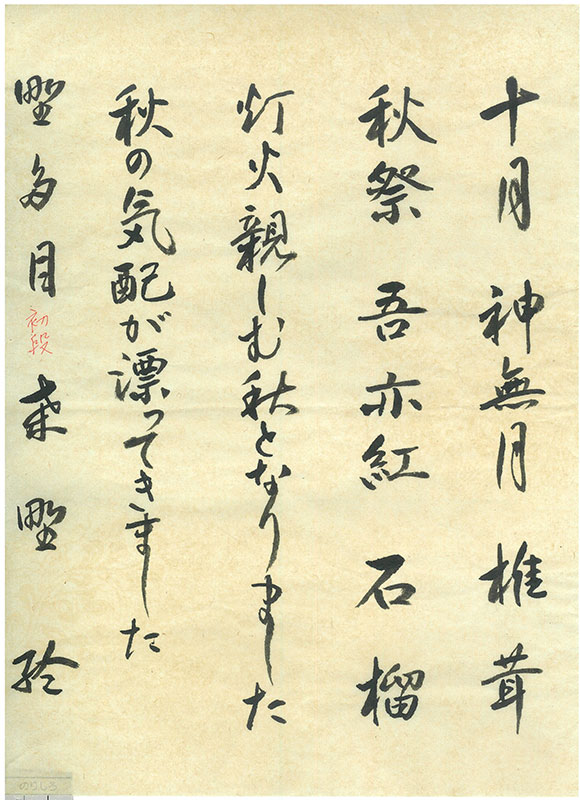 十月 神無月 椎茸
秋祭 吾亦紅 石榴
灯火親しむ秋となりました
秋の気配が漂ってきました
野多目 初段 栗野 玲
のりしろ